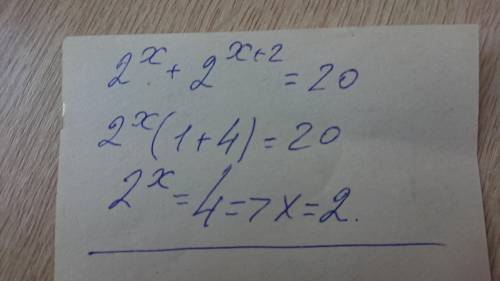 2^x + 2^{x+2} = 20
2^x(1+4)=20
2^x = 4 => x = 2.